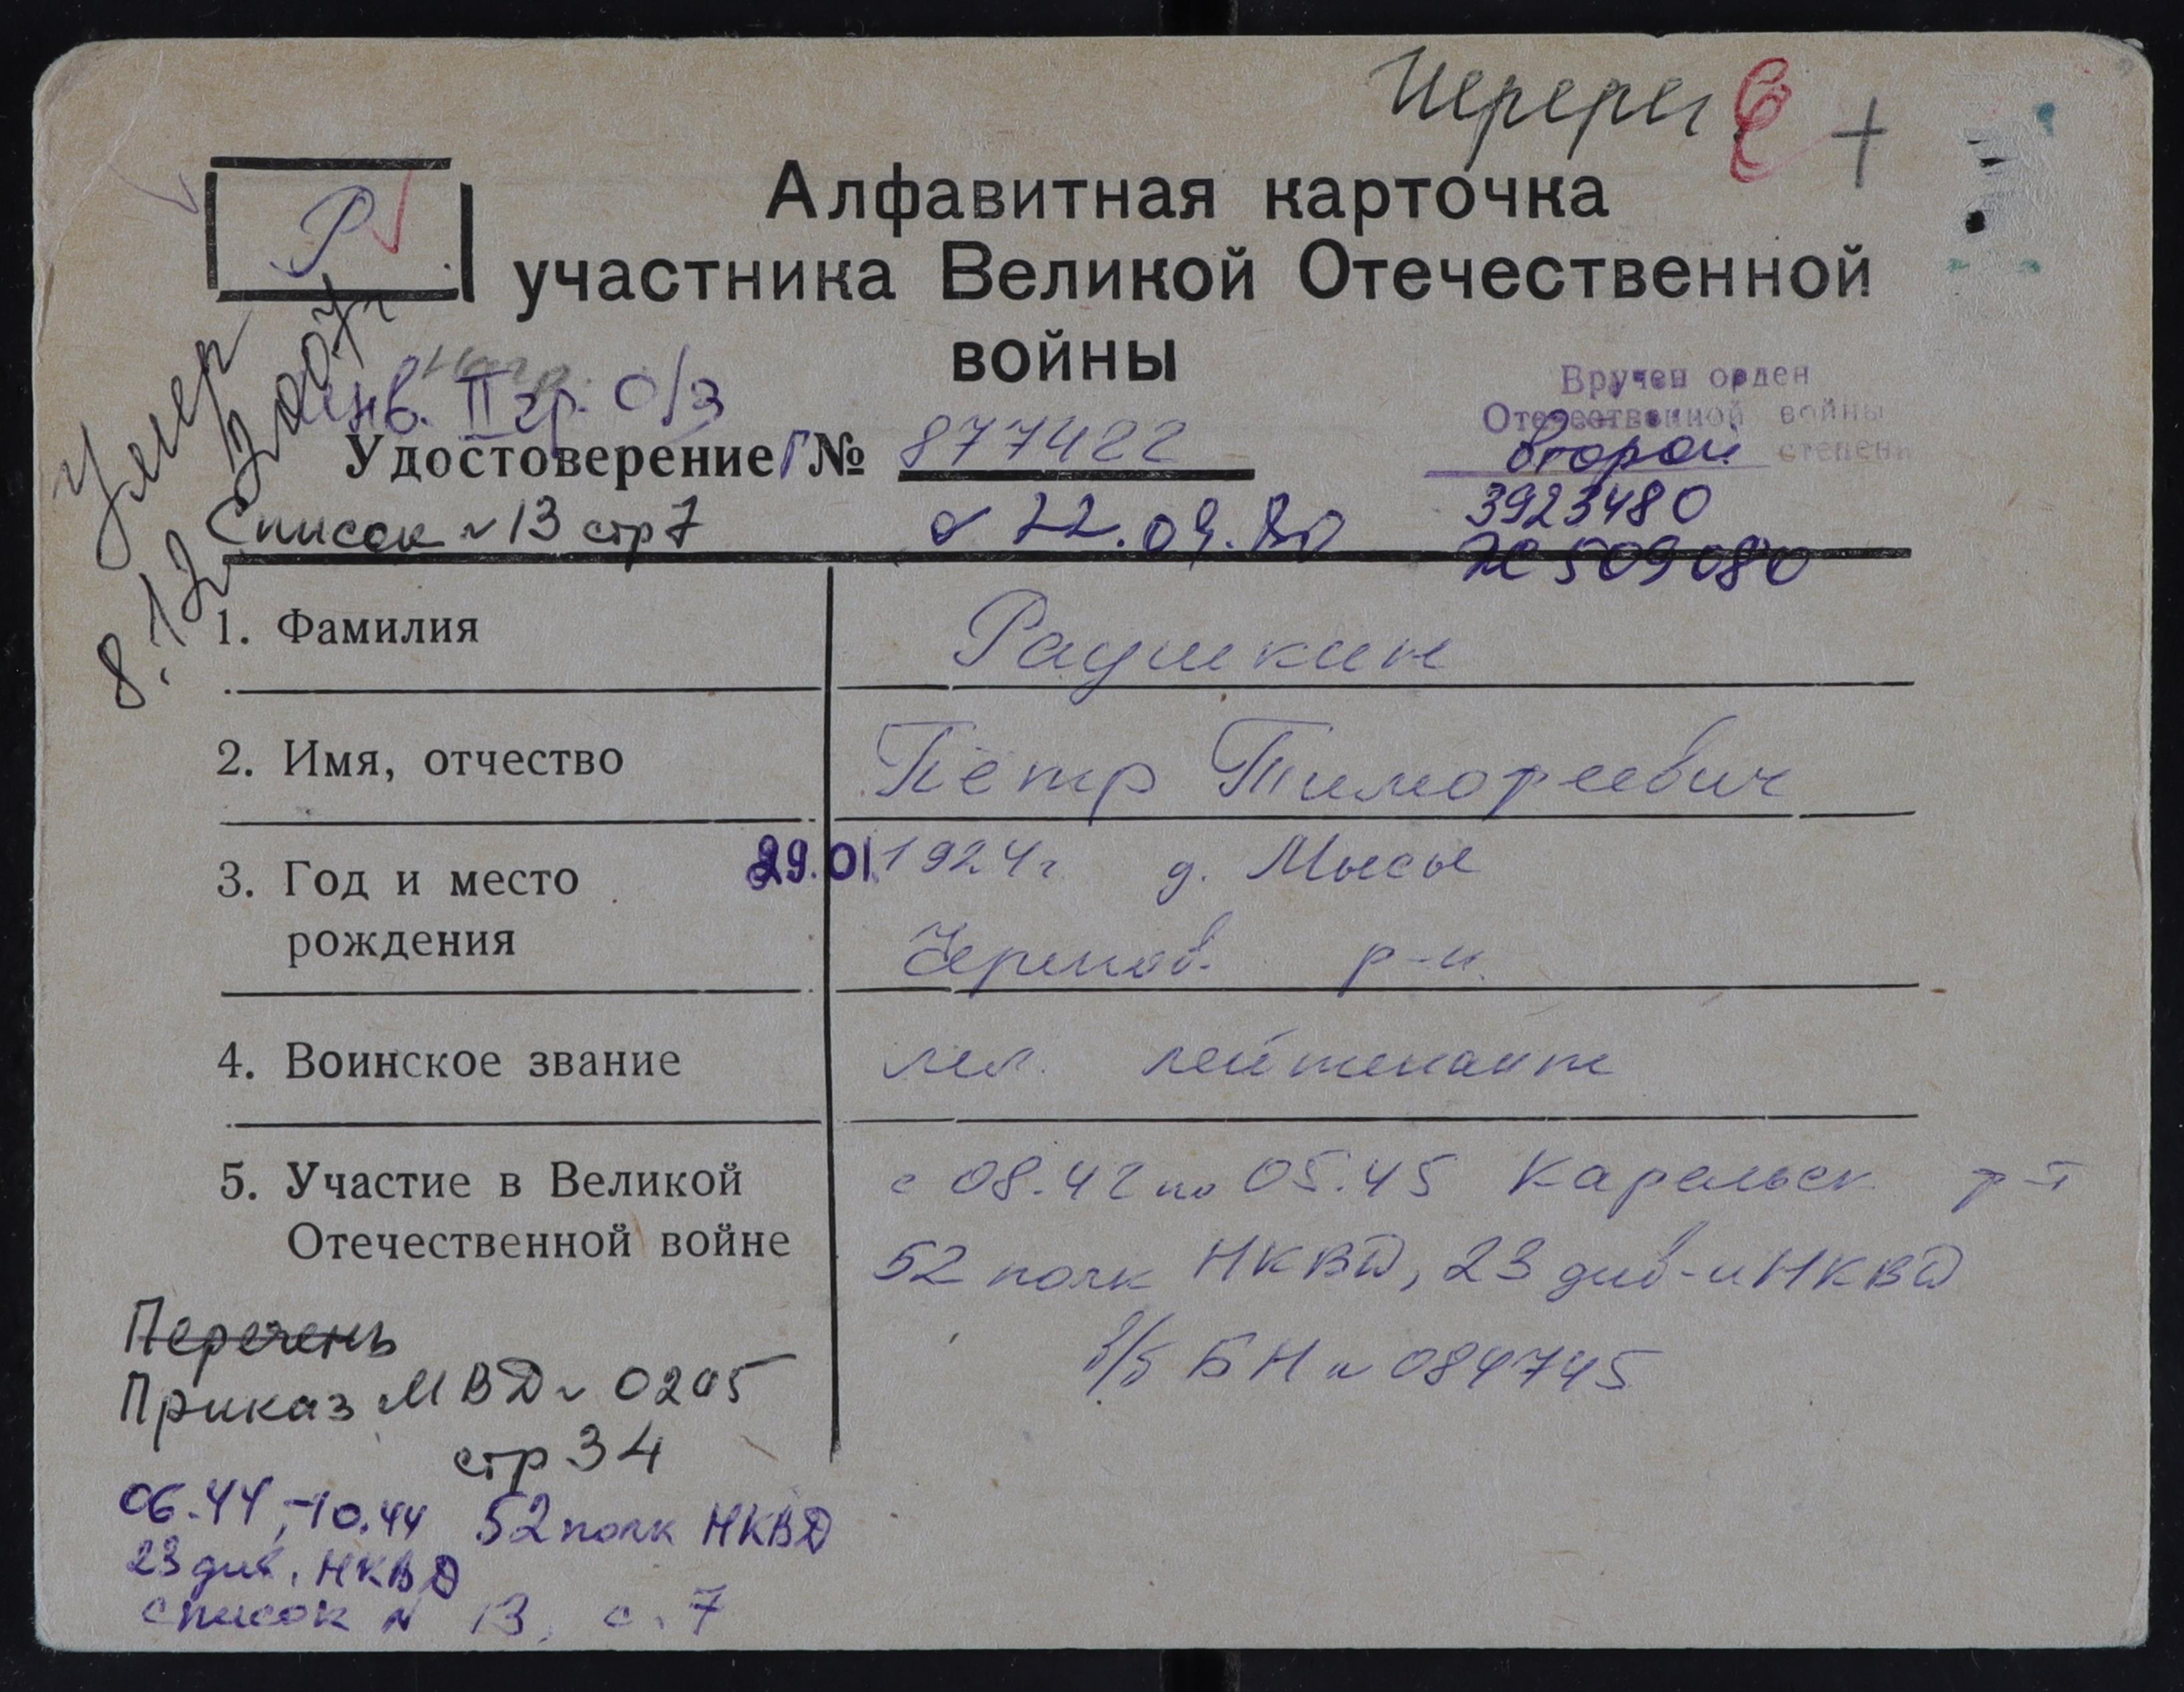 Перерег +
Р
Алфавитная карточка
участника Великой Отечественной
войны
Умер
8.12.2007г
инв. II гр. О/З
Вручен орден
Отечественной войны
второй степени
Удостоверение Г № 877422
3923480
Список №13 стр 7
22.04.80
509080
1. Фамилия Раушкин
2. Имя, отчество Пётр Тимофеевич
3. Год и место рождения 29.01. 1924г д. Мысы
р-н.
4. Воинское звание мл. лейтенант
5. Участие в Великой Отечественной войне с 08.42 по 05.45 Карельск ф-т
52 полк НКВД, 23 див-и НКВД
в/б БН № 084745
Перечень
Приказ МВД № 0205
стр 34
06.44,-10.44 52 полк НКВД
23 див. НКВД
список № 13, с. 7